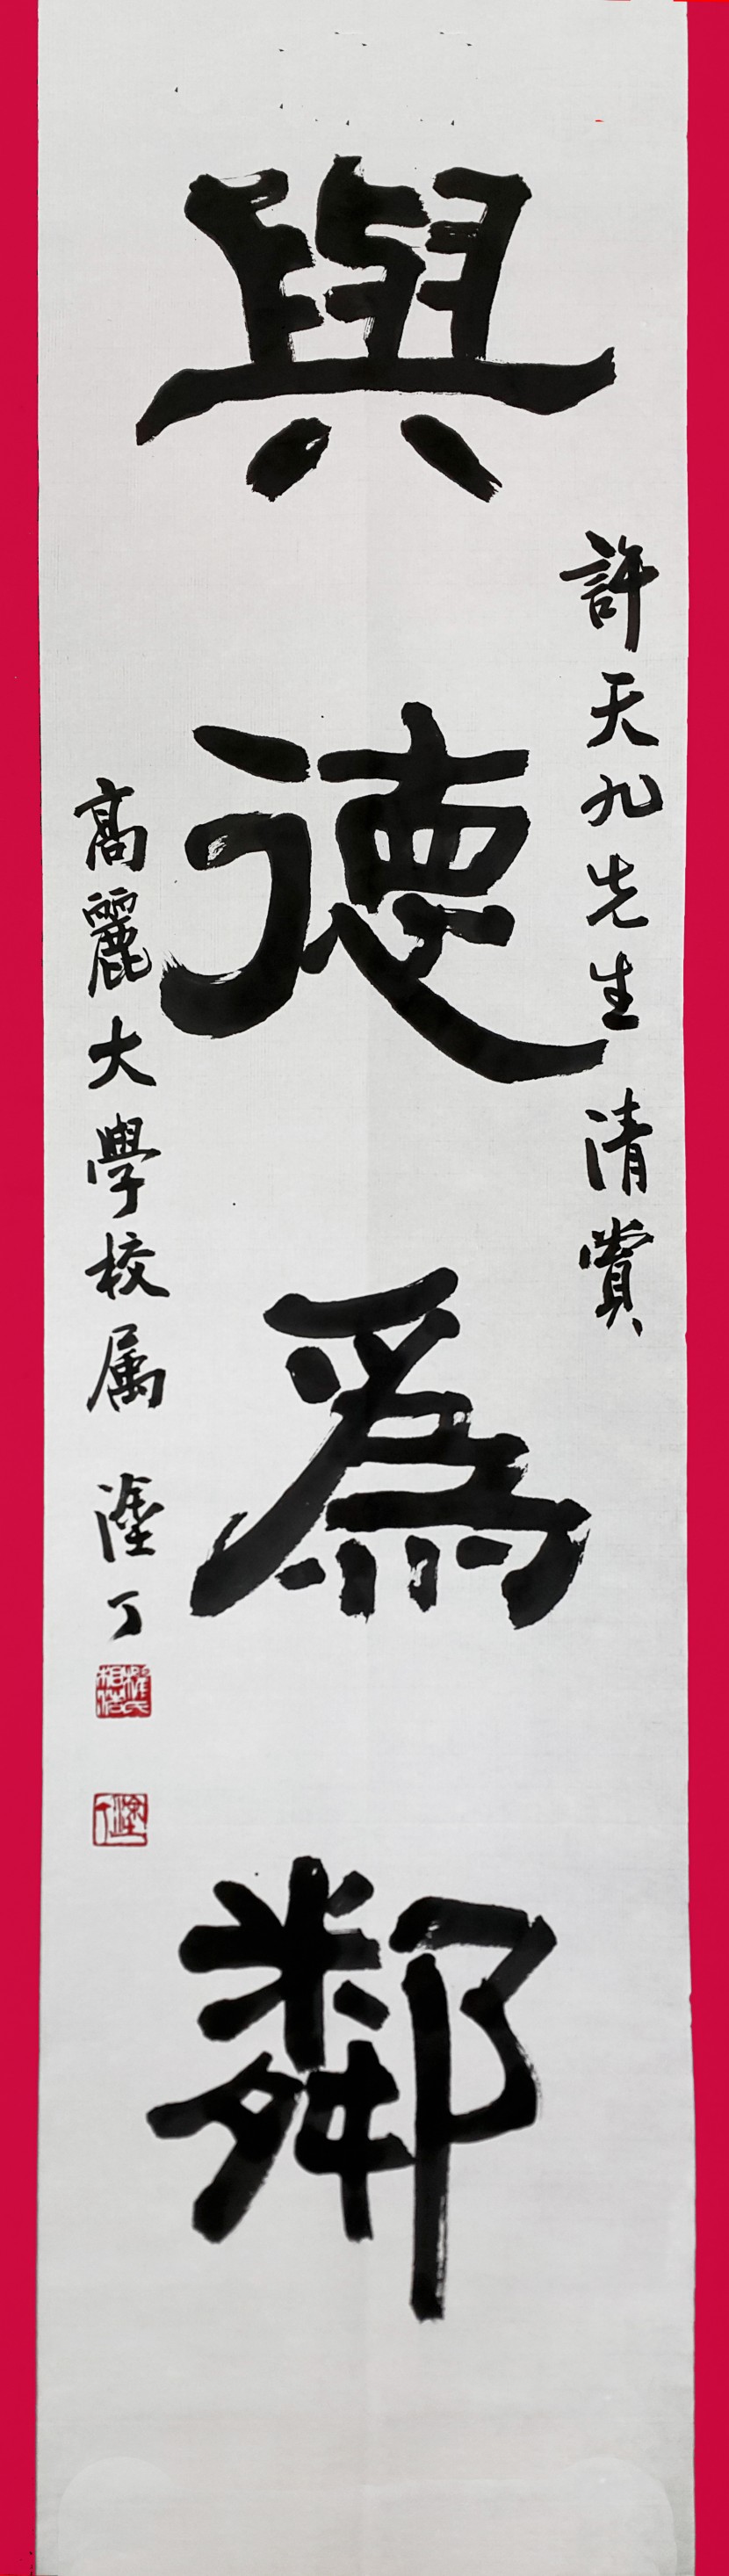 許天九先生 清賞
與德為鄰
高麗大學校属 塗丁